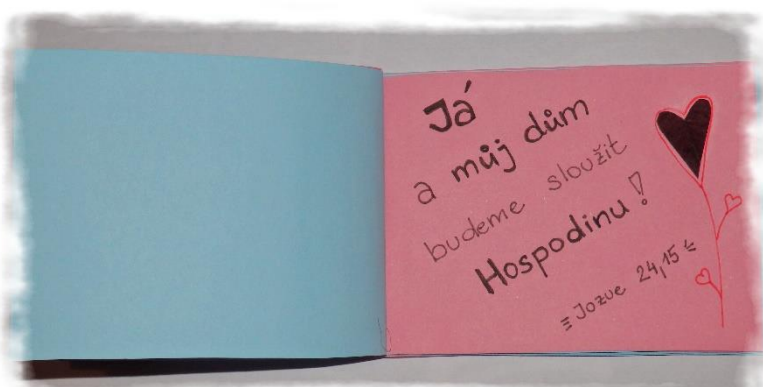 Já
a můj dům
budeme sloužit
Hospodinu!
= Jozue 24,15 =